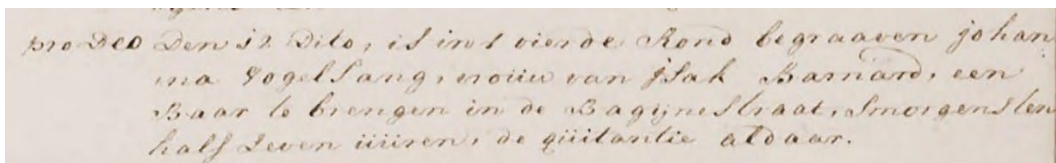 pro Deo Den 12 Dito, is in't vierde Rond begraaven johan
na Vogelsang, vroüw van jsak Barnard, een
Baar te brengen in de Bagijnestraat, Smorgens ten
half Seven üüren, de qüitantie aldaar.